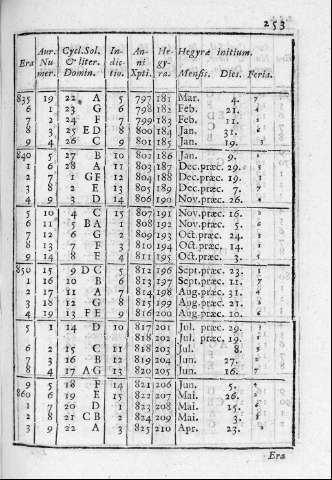 253
Aur. Cycl. Sol. In- An- He- Hegyræ initium.
Era Nu & liter. dic- ni gy-
mer. Domin. tio. Xpti. ra. Mensis. Dies. Feria.
835 19 22 A 5 797 181 Mar. 4. 7
6 1 23 G 6 798 182 Feb. 21.
7 2 24 F 7 799 183 Feb. 11.
8 3 25 ED 8 800 184 Jan. 31. 6
9 4 26 C 9 801 185 Jan. 19. 3
840 5 27 B 10 802 186 Jan. 9. 1
1 6 28 A 11 803 187 Dec.præc. 29.
2 7 1 GF 12 804 188 Dec.præc. 19.
3 8 2 E 13 805 189 Dec.præc. 7. 7
4 9 3 D 14 806 190 Nov.præc. 26.
5 10 4 C 15 807 191 Nov.præc. 16.
6 11 5 BA 1 808 192 Nov.præc. 5.
7 12 6 G 2 809 193 Oct.præc. 24.
8 13 7 F 3 810 194 Oct.præc. 14.
9 14 8 E 4 811 195 Oct.præc. 3.
850 15 9 DC 5 812 196 Sept.præc. 23.
1 16 10 B 6 813 197 Sept.præc. 11. 7
2 17 11 A 7 814 198 Aug.præc. 31.
3 18 12 G 8 815 199 Aug.præc. 21.
4 19 13 FE 9 816 200 Aug.præc. 10.
5 1 14 D 10 817 201 Jul. præc. 29.
818 202 Jul. præc. 19.
6 2 15 C 11 818 203 Jul. 8.
7 3 16 B 12 819 204 Jun. 27.
8 4 17 AG 13 820 205 Jun. 16. 7
9 5 18 F 14 821 206 Jun. 5.
860 6 19 E 15 822 207 Mai. 26.
1 7 20 D 1 823 208 Mai. 15.
2 8 21 CB 2 824 209 Mai. 3.
3 9 22 A 3 825 210 Apr. 23.
Era